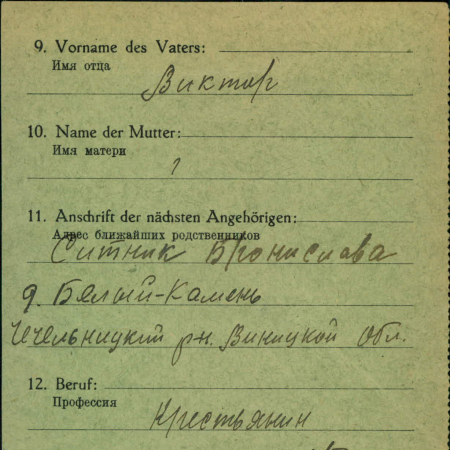 9. Vorname des Vaters:
Имя отца
Виктор
10. Name der Mutter:
Имя матери
?
11. Anschrift der nächsten Angehörigen:
Адрес ближайших родственников
Ситник Бронислава
д. Белый-Камень
Чечельницкий р-н. Виницкой обл.
12. Beruf:
Профессия
Крестьянин